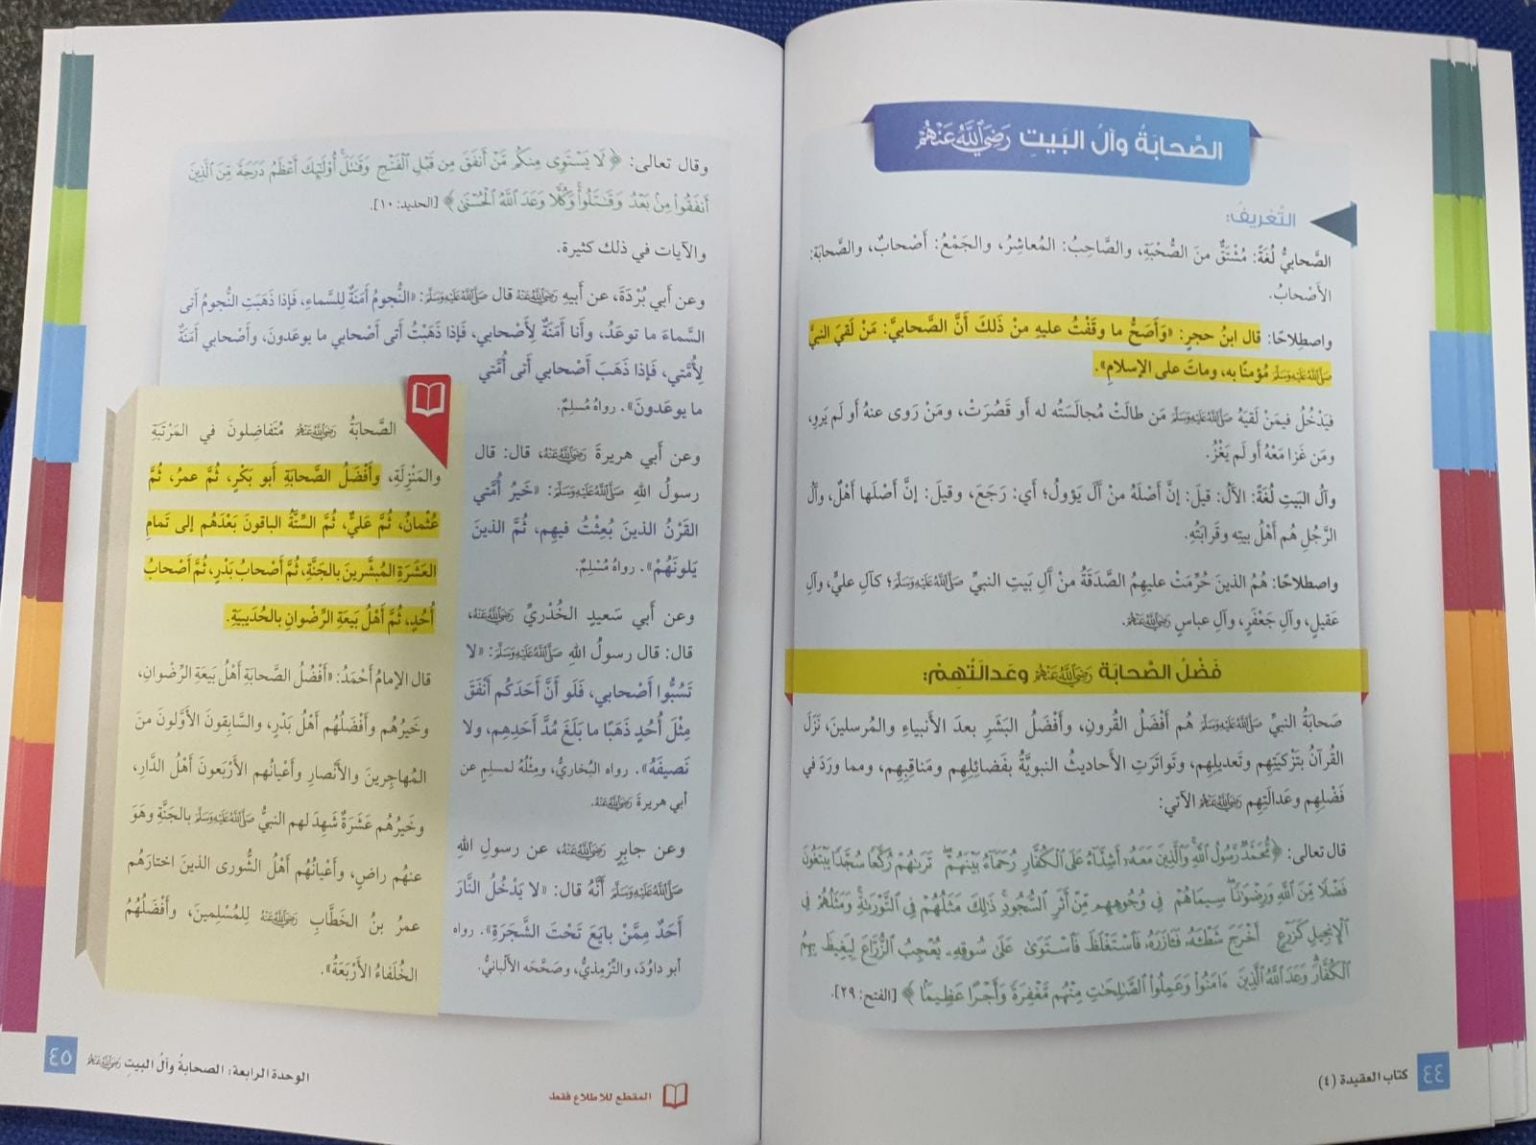 الصَّحابَةُ وآلُ البَيتِ رَضِيَ اللَّهُ عَنْهُمْ
التَّعْرِيفُ:
الصَّحابيُّ لُغَةً: مُشْتَقٌّ مِنَ الصُّحْبَةِ، والصَّاحِبُ: المُعاشِرُ، والجَمْعُ: أَصْحابٌ، والصَّحابَة:
الأَصْحابُ.
واصطِلاحًا: قال ابنُ حجرٍ: «وَأَصَحُّ ما وقَفْتُ عليهِ مِنْ ذَلكَ أَنَّ الصَّحابيَّ: مَنْ لَقيَ النبيَّ
صَلَّى اللَّهُ عَلَيْهِ وَسَلَّمَ مُؤمنًا به، وماتَ على الإسلامِ».
فيَدْخُلُ فيمَنْ لَقيَهُ صَلَّى اللَّهُ عَلَيْهِ وَسَلَّمَ مَن طالَتْ مُجالَسَتُه له أَو قَصُرَتْ، ومَنْ رَوى عنهُ أَو لَم يَروِ،
ومَن غَزا مَعْهُ أَو لَم يَغْزُ.
وآلُ البَيتِ لُغَةً: الآلُ: قيلَ: إنَّ أَصْلَهُ مِنْ آلَ يَؤولُ؛ أي: رَجَعَ، وقيلَ: إنَّ أَصْلَها أَهْلٌ، وآلُ
الرَّجُلِ هُم أَهْلُ بيتِه وقَرابَتُهِ.
واصطلاحًا: هُمُ الذينَ حُرِّمَتْ عليهِمُ الصَّدَقَةُ مِنْ آلِ بَيتِ النبيِّ صَلَّى اللَّهُ عَلَيْهِ وَسَلَّمَ؛ كآلِ عليٍّ، وآلِ
عَقيلٍ، وآلِ جَعْفَرٍ، وآلِ عباسٍ رَضِيَ اللَّهُ عَنْهُمْ.
فَضْلُ الصَّحابَة رَضِيَ اللَّهُ عَنْهُمْ وعَدالَتُهِمْ:
صَحابَةُ النبيِّ صَلَّى اللَّهُ عَلَيْهِ وَسَلَّمَ هُم أَفْضَلُ القُرونِ، وأَفْضَلُ البَشَرِ بعدَ الأَنبياءِ والمُرسلينَ، نَزَلَ
القُرآنُ بتَزْكيَتِهِم وتَعديلِهِم، وتَواتَرَتِ الأَحاديثُ النبويَّةُ بفَضائِلِهِم ومَناقِبِهِم، ومما ورَدَ في
فَضْلِهِم وعَدالَتِهِم رَضِيَ اللَّهُ عَنْهُمْ الآتي:
قال تعالى: ﴿مُّحَمَّدٌ رَّسُولُ اللَّهِ وَالَّذِينَ مَعَهُ أَشِدَّاءُ عَلَى الْكُفَّارِ رُحَمَاءُ بَيْنَهُمْ تَرَاهُمْ رُكَّعًا سُجَّدًا يَبْتَغُونَ
فَضْلًا مِّنَ اللَّهِ وَرِضْوَانًا سِيمَاهُمْ فِي وُجُوهِهِم مِّنْ أَثَرِ السُّجُودِ ذَلِكَ مَثَلُهُمْ فِي التَّوْرَاةِ وَمَثَلُهُمْ فِي
الْإِنجِيلِ كَزَرْعٍ أَخْرَجَ شَطْأَهُ فَآزَرَهُ فَاسْتَغْلَظَ فَاسْتَوَى عَلَى سُوقِهِ يُعْجِبُ الزُّرَّاعَ لِيَغِيظَ بِهِمُ
الْكُفَّارَ وَعَدَ اللَّهُ الَّذِينَ ءَامَنُوا وَعَمِلُوا الصَّالِحَاتِ مِنْهُم مَّغْفِرَةً وَأَجْرًا عَظِيمًا﴾ [الفتح: ٢٩].
٤٤ كتاب العقيدة (٤)
وقال تعالى: ﴿لَا يَسْتَوِي مِنكُم مَّنْ أَنفَقَ مِن قَبْلِ الْفَتْحِ وَقَاتَلَ أُوْلَئِكَ أَعْظَمُ دَرَجَةً مِّنَ الَّذِينَ
أَنفَقُوا مِنْ بَعْدُ وَقَاتَلُوا وَكُلًّا وَعَدَ اللَّهُ الْحُسْنَى﴾ [الحديد: ١٠].
والآيات في ذلك كثيرة.
وعن أَبي بُرْدَةَ، عن أَبيهِ رَضِيَ اللَّهُ عَنْهُ قال صَلَّى اللَّهُ عَلَيْهِ وَسَلَّمَ: «النُّجومُ أَمَنَةٌ لِلسَّماءِ، فَإِذا ذَهَبَتِ النُّجومُ أَتى
السَّماءَ ما توعَدُ، وأَنا أَمَنَةٌ لِأَصْحابي، فَإِذا ذَهَبْتُ أَتى أَصْحابي ما يوعَدونَ، وأَصْحابي أَمَنَةٌ
لِأُمَّتي، فَإِذا ذَهَبَ أَصْحابي أَتى أُمَّتي
ما يوعَدونَ». رواهُ مُسلِمٌ.
وعن أَبي هريرةَ رَضِيَ اللَّهُ عَنْهُ، قال: قال
رسولُ اللهِ صَلَّى اللَّهُ عَلَيْهِ وَسَلَّمَ: «خَيرُ أُمَّتي
القَرْنُ الذينَ بُعِثْتُ فيهِم، ثُمَّ الذينَ
يَلونَهُمْ». رواهُ مُسْلِمٌ.
وعن أَبي سَعيدٍ الخُدْريِّ رَضِيَ اللَّهُ عَنْهُ،
قال: قال رسولُ اللهِ صَلَّى اللَّهُ عَلَيْهِ وَسَلَّمَ: «لا
تَسُبُّوا أَصْحابي، فَلَو أَنَّ أَحَدَكُم أَنْفَقَ
مِثْلَ أُحُدٍ ذَهَبًا ما بَلَغَ مُدَّ أَحَدِهِم، ولا
نَصيفَهُ». رواه البُخاريُّ، ومِثْلُهُ لمسلِمٍ عن
أبي هريرةَ رَضِيَ اللَّهُ عَنْهُ.
وعن جابِرٍ رَضِيَ اللَّهُ عَنْهُ، عن رسولِ اللهِ
صَلَّى اللَّهُ عَلَيْهِ وَسَلَّمَ أَنَّهُ قال: «لا يَدْخُلُ النَّارَ
أَحَدٌ مِمَّنْ بايَعَ تَحْتَ الشَّجَرَةِ». رواه
أبو داوُدَ، والتِّرْمِذيُّ، وصَحَّحَه الأَلْبانيُّ.
الصَّحابَةُ رَضِيَ اللَّهُ عَنْهُمْ مُتَفاضِلونَ في المَرْتَبَةِ
والمَنْزِلَةِ، وأَفْضَلُ الصَّحابَةِ أَبو بَكْرٍ، ثُمَّ عمرُ، ثُمَّ
عُثْمانُ، ثُمَّ عَليٌّ، ثُمَّ السِّتَّةُ الباقونَ بَعْدَهُم إلى تَمامِ
العَشَرَةِ المُبشَّرينَ بالجَنَّةِ، ثُمَّ أَصْحابُ بَدْرٍ، ثُمَّ أَصْحابُ
أُحُدٍ، ثُمَّ أَهْلُ بَيعَةِ الرِّضْوانِ بالحُدَيبيَةِ.
قال الإمامُ أَحْمَدُ: «أَفْضُلُ الصَّحابَةِ أَهْلُ بَيعَةِ الرِّضْوانِ،
وخَيرُهُم وأَفْضَلُهُم أَهْلُ بَدْرٍ، والسَّابِقونَ الأَوَّلونَ مِنَ
المُهاجِرينَ والأَنْصارِ وأَعْيانُهم الأَرْبَعونَ أَهْلُ الدَّارِ،
وخَيرُهُم عَشَرَةٌ شَهِدَ لهم النبيُّ صَلَّى اللَّهُ عَلَيْهِ وَسَلَّمَ بالجَنَّةِ وهوَ
عنهُم راضٍ، وأَعْيانُهُم أَهْلُ الشُّورى الذينَ اختارَهُم
عمرُ بنُ الخَطَّابِ رَضِيَ اللَّهُ عَنْهُ لِلمُسْلِمينَ، وأَفْضَلُهُمُ
الخُلَفاءُ الأَرْبَعَةُ».
المقطع للاطلاع فقط
الوحدة الرابعة: الصحابةُ وآلُ البيتِ رَضِيَ اللَّهُ عَنْهُمْ ٤٥